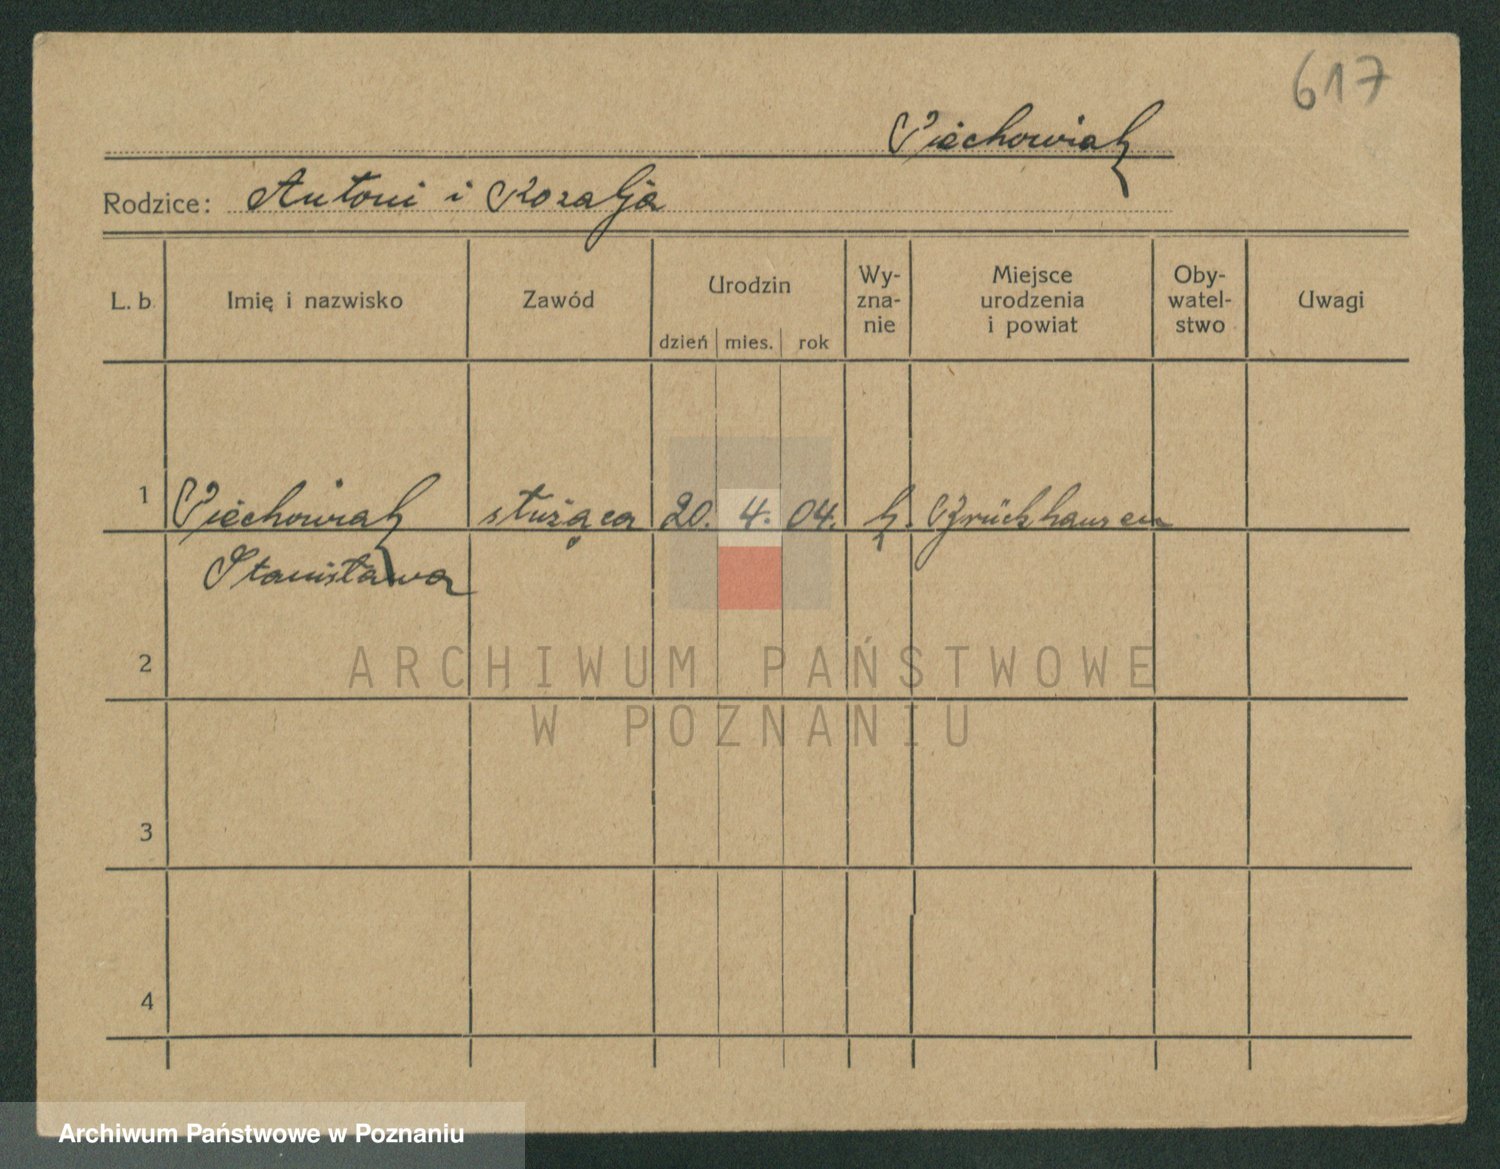 617
Piechowiak
Rodzice: Antoni i Rozalja
L. b. Imię i nazwisko Zawód Urodzin dzień mies. rok Wy-zna-nie Miejsce urodzenia i powiat Oby-watel-stwo Uwagi
1 Piechowiak służąca 20. 4. 04. k. Brückhausen
Stanisława
2
ARCHIWUM PAŃSTWOWE
W POZNANIU
3
4
Archiwum Państwowe w Poznaniu